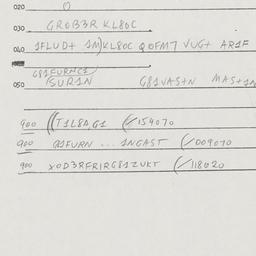 020
030 GROB3R KL80C
040 1FLUD+ 1M)KL80C QOFM7 VUG+ AR1F
G81FURNC1
050 SUR1N G81VAS+N MAS+1N
900 ((T1L8A,G1 (/154070
900 Q1FURN ... 1NGAST (/009070
900 XOD3RFRIRG81ZUKT (/118020